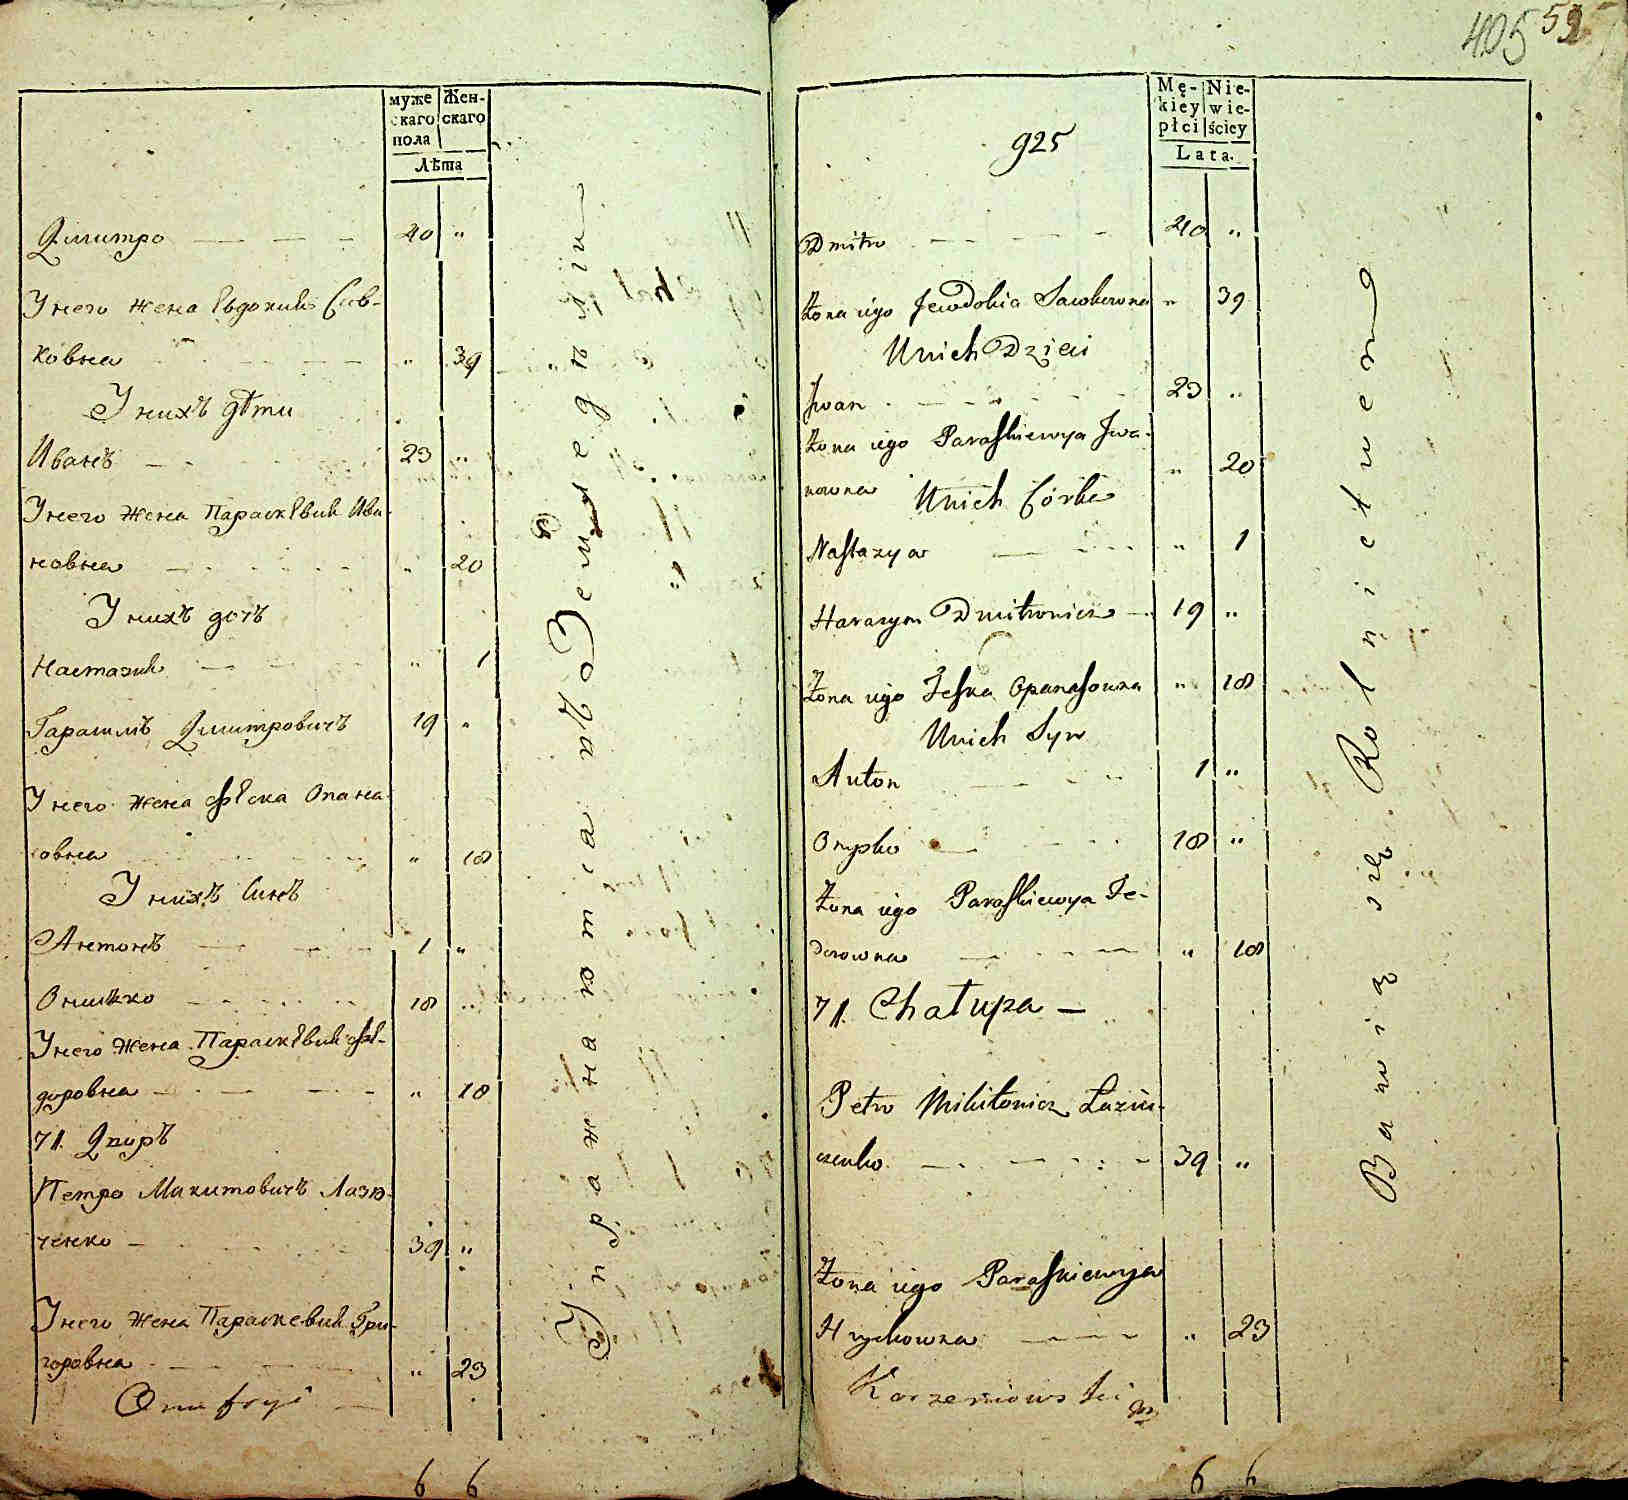 муже
скаго
пола
Жен-
скаго
Лѣта
Дмитро 40 "
У него жена Евдокия Сав-
ковна " 39
У нихъ дѣти
Иванъ 23 "
У него жена Параскевия Ива-
новна " 20
У нихъ дочъ
Настазия " 1
Гарасимъ Дмитровичъ 19 "
У него жена Феска Опана-
совна " 18
У нихъ синъ
Антонъ 1 "
Онишко 18 "
У него жена Параскевия Фе-
доровна " 18
71. Двиръ
Петро Микитовичъ Лазю-
ченко 39 "
У него жена Параскевия Гри-
горовна " 23
Onufryi
6 6
Упражнаютса в Земледелии
405
925
Mę-
kiey
płci
Nie-
wie-
ściey
Lata.
Dmitro 40 "
Żona iego Jewdokia Sawkowna " 39
U nich Dzieci
Jwan 23 "
Żona iego Paraskiewya Jwa-
nowna " 20
U nich Córka
Nastazya " 1
Harasym Dmitrowicz 19 "
Żona iego Feska Opanasowna " 18
U nich Syn
Anton 1 "
Onyszko 18 "
Żona iego Paraskiewya Fe-
dorowna " 18
71. Chałupa
Petro Mikitowicz Łaziu-
czenko 39 "
Żona iego Paraskiewya
Hryhowna " 23
Korzeniowski
6 6
Bawią się Rolnictwem